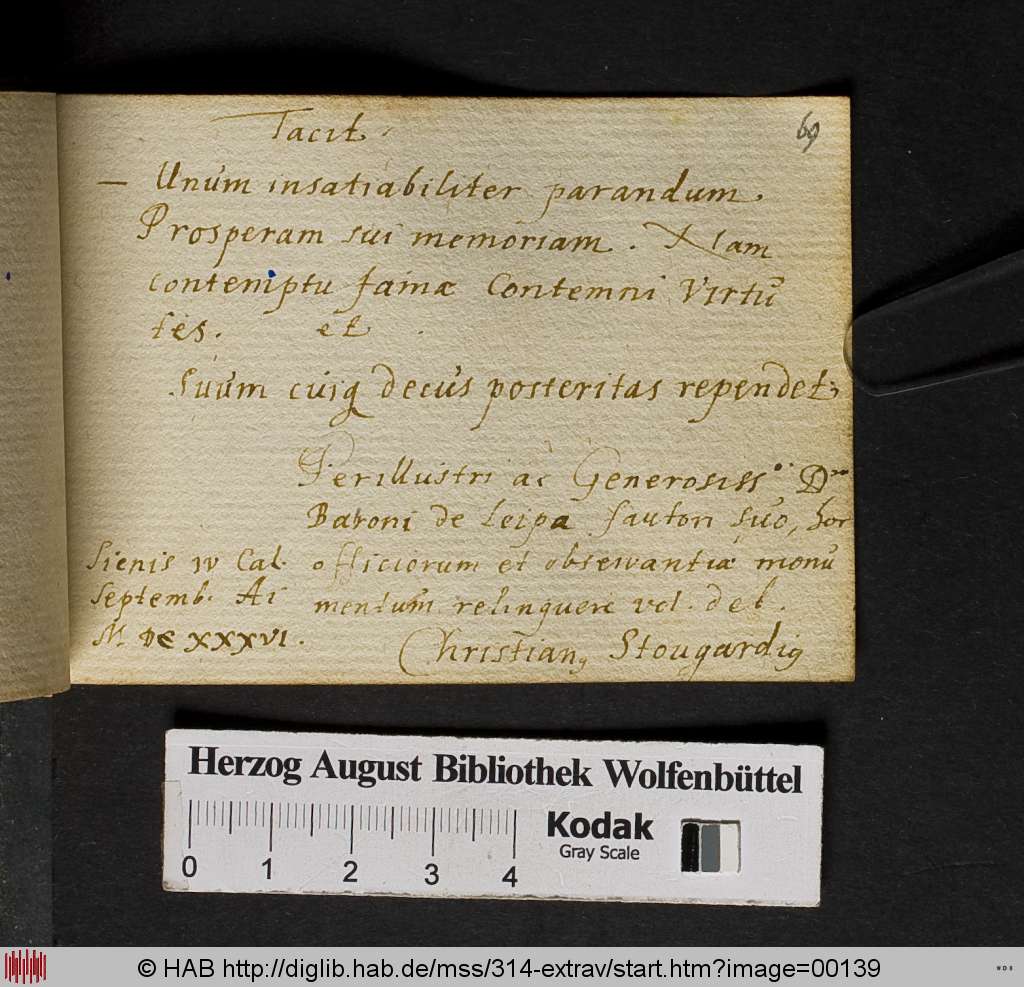 Tacit.
69
— Unum insatiabiliter parandum.
Prosperam sui memoriam. Nam
contemptu famæ Contemni Virtu
tes. et
Suum cuiq decus posteritas rependet;
Perillustri ac Generosiss.o Dno
Baroni de Leipa fautori suo, hoc
officiorum et observantiæ monu
mentum relinquere vol. deb.
Sienis IV Cal.
Septemb. Ai
M. DC XXXVI.
Christianq Stougardiq
Herzog August Bibliothek Wolfenbüttel
0 1 2 3 4
Kodak
Gray Scale
© HAB http://diglib.hab.de/mss/314-extrav/start.htm?image=00139
WDB